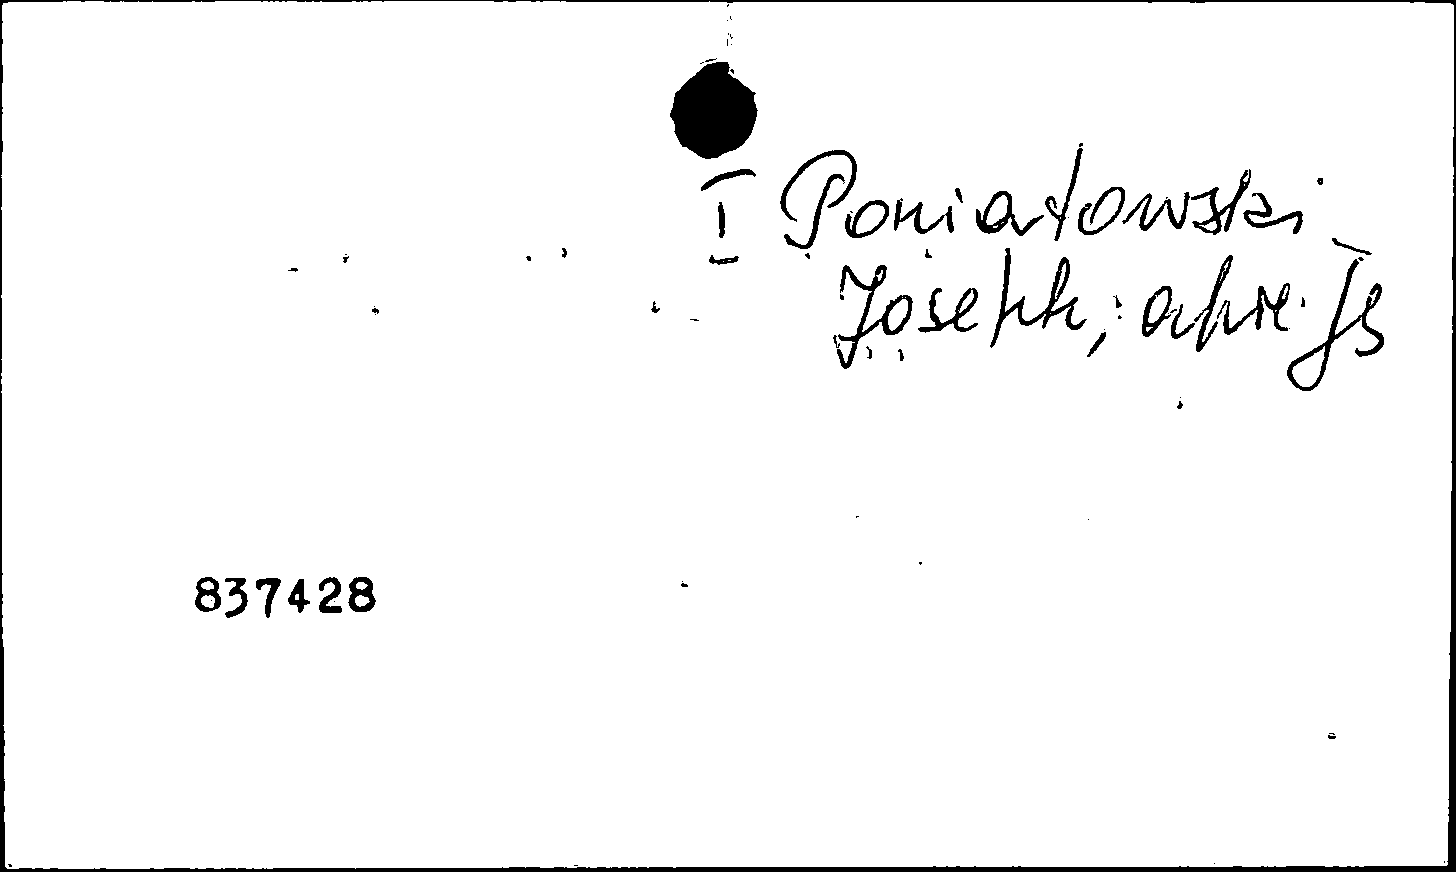 I Poniatowski
Joseph,
837428